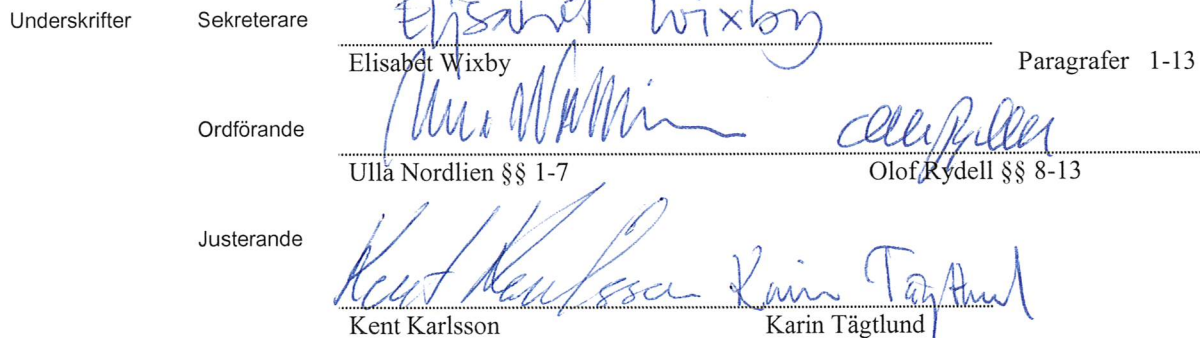 Underskrifter Sekreterare Elisabet Wixby
Elisabet Wixby Paragrafer 1-13
Ordförande
Ulla Nordlien §§ 1-7 Olof Rydell §§ 8-13
Justerande Kent Karlsson Karin Tägtlund
Kent Karlsson Karin Tägtlund